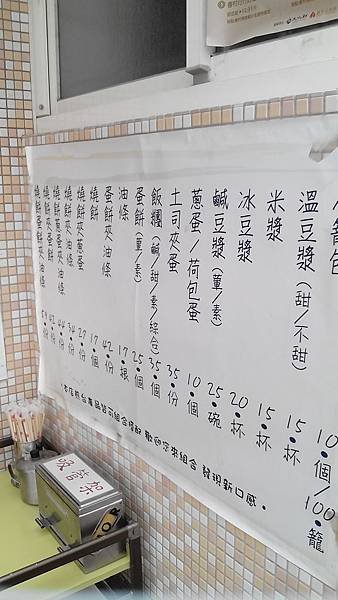 小籠包 10●個/100●籠
溫豆漿(甜/不甜) 15●杯
米漿 15●杯
冰豆漿 20●杯
鹹豆漿(葷/素) 25●碗
蔥蛋/荷包蛋 10●個
土司夾蛋 35●份
飯糰(鹹/甜/素/綜合) 35●個
蛋餅(葷/素) 25●個
油條 17●根
蛋餅夾油條 42●份
燒餅 17●個
燒餅夾蔥蛋 27●份
燒餅夾油條 34●份
燒餅夾蔥蛋油條 44●份
燒餅夾蛋餅 42●份
燒餅夾蛋餅油條 ●份
產品皆可組合搭配 歡迎您來組合 發現新口感。
吸管架